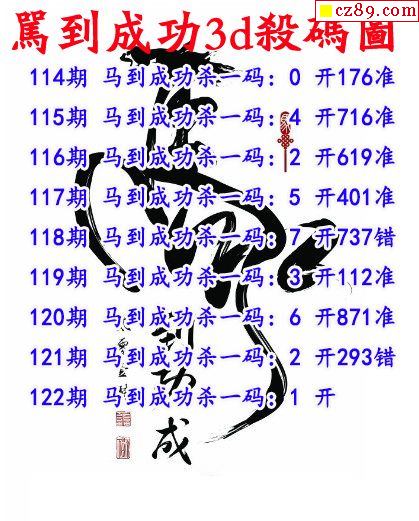 cz89.com
罵到成功3d殺碼圖
114期 马到成功杀一码: 0 开176准
115期 马到成功杀一码: 4 开716准
116期 马到成功杀一码: 2 开619准
117期 马到成功杀一码: 5 开401准
118期 马到成功杀一码: 7 开737错
119期 马到成功杀一码: 3 开112准
120期 马到成功杀一码: 6 开871准
121期 马到成功杀一码: 2 开293错
122期 马到成功杀一码: 1 开
到功
成